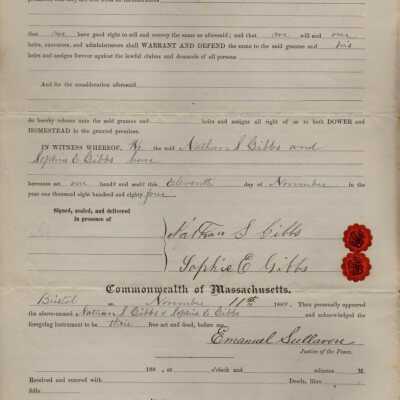 that we have good right to sell and convey the same as aforesaid; and that we will and our
heirs, executors, and administrators shall WARRANT AND DEFEND the same to the said grantee and his
heirs and assigns forever against the lawful claims and demands of all persons
And for the consideration aforesaid
do hereby release unto the said grantee and heirs and assigns all right of or to both DOWER and
HOMESTEAD in the granted premises.
IN WITNESS WHEREOF, We the said Nathan S Gibbs and
Sophie E Gibbs have
hereunto set our hand s and seal s this eleventh day of November in the
year one thousand eight hundred and eighty four
Signed, sealed, and delivered
in presence of
Nathan S Gibbs
Sophie E Gibbs
Commonwealth of Massachusetts.
Bristol ss. November 11th 1884. Then personally appeared
the above-named Nathan S Gibbs & Sophie E Gibbs and acknowledged the
foregoing instrument to be their free act and deed, before me,
Emanuel Sullavou
Justice of the Peace.
188 , at o'clock and minutes M.
Received and entered with Deeds, libro